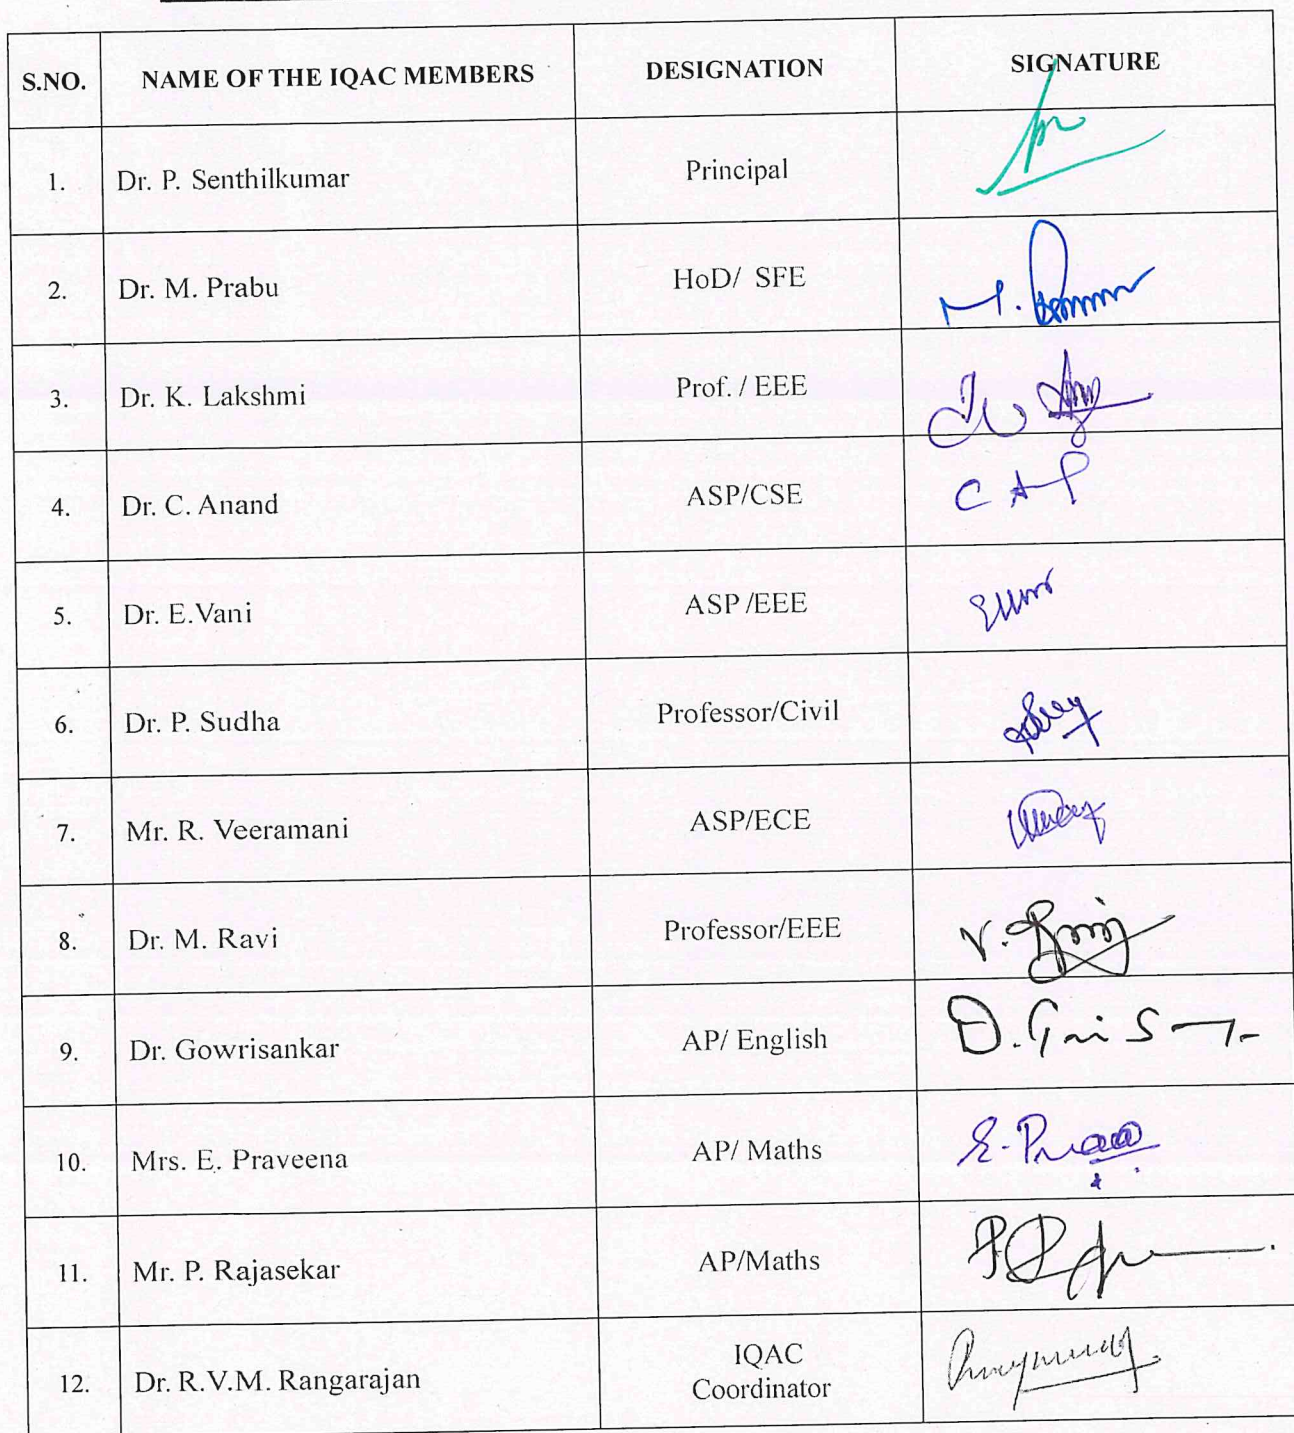 S.NO. NAME OF THE IQAC MEMBERS DESIGNATION SIGNATURE
1. Dr. P. Senthilkumar Principal
2. Dr. M. Prabu HoD/ SFE M.
3. Dr. K. Lakshmi Prof. / EEE
4. Dr. C. Anand ASP/CSE
5. Dr. E.Vani ASP /EEE
6. Dr. P. Sudha Professor/Civil
7. Mr. R. Veeramani ASP/ECE
8. Dr. M. Ravi Professor/EEE
9. Dr. Gowrisankar AP/ English
10. Mrs. E. Praveena AP/ Maths
11. Mr. P. Rajasekar AP/Maths
12. Dr. R.V.M. Rangarajan IQAC
Coordinator